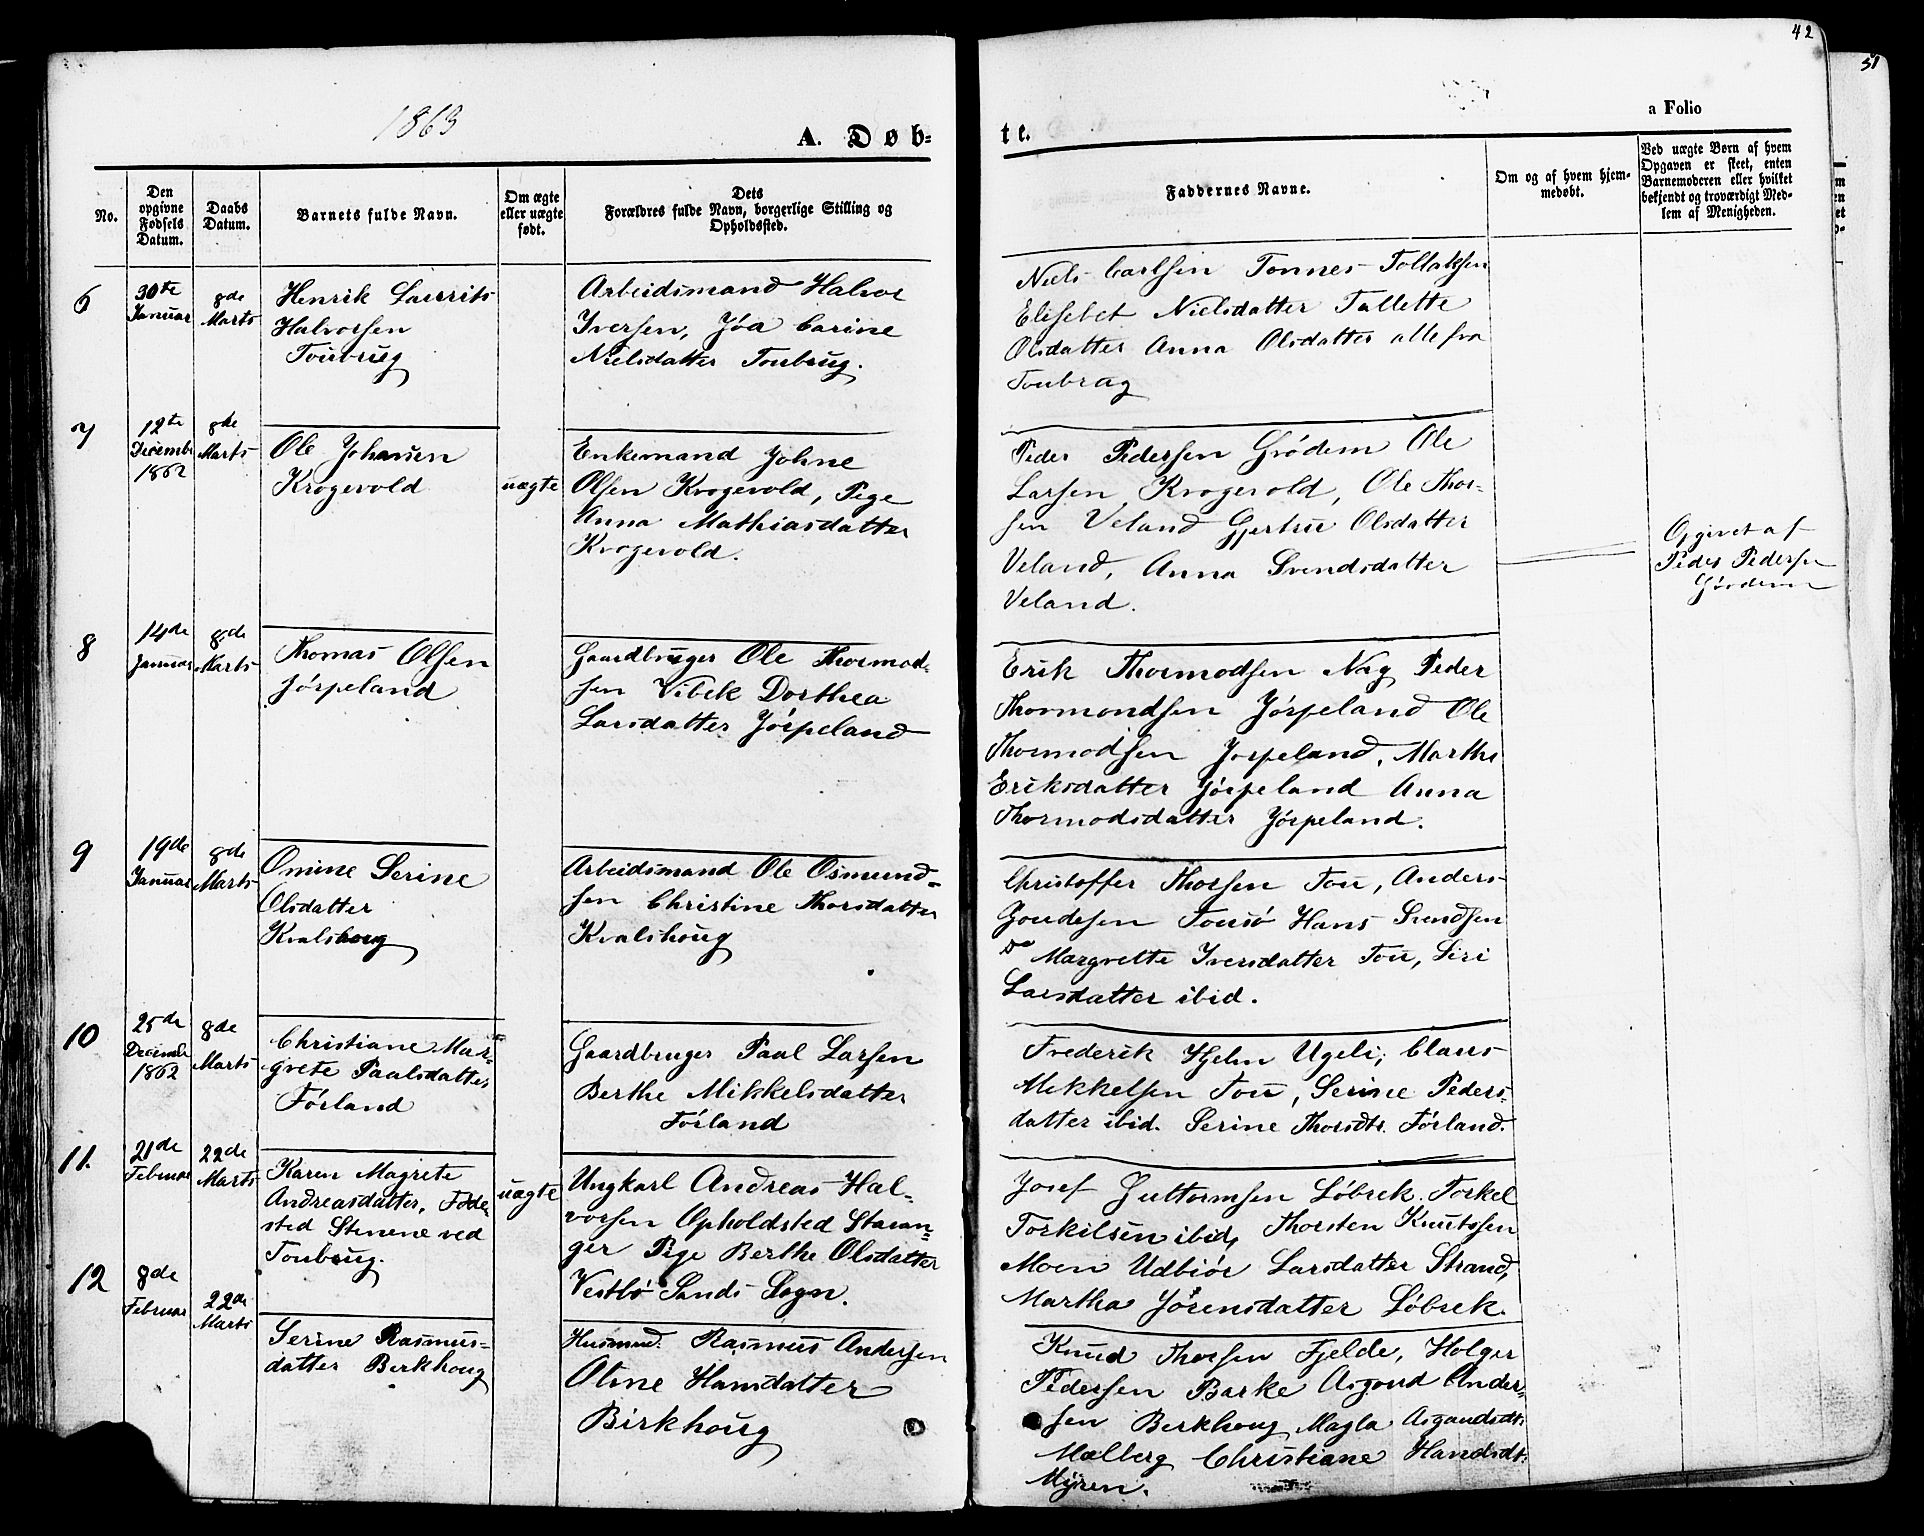 42
51
1863
A. Døb-
te.
a Folio
No.
Den
opgivne
Fødsels
Datum.
Daabs
Datum.
Barnets fulde Navn.
Om ægte
eller uægte
født.
Dets
Forældres fulde Navn, borgerlige Stilling og
Opholdssted.
Faddernes Navne.
Om og af hvem hjem-
medøbt.
Ved uægte Børn af hvem
Opgaven er skeet, enten
Barnemoderen eller hvilket
bekjendt og troværdigt Med-
lem af Menigheden.
6
30te
Januar
8de
Marts
Henrik Laurits
Halvorsen
Toubrug
Arbeidsmand Halvor
Iversen, Jóa Carine
Nielsdatter Toubrug.
Niels Carlsen Tonnes Tollaksen
Elisebet Nielsdatter Tallette
Olsdatter Anna Olsdatter alle fra
Toubrug
7
12te
Decembr
1862
8de
Marts
Ole Johnsen
Krogevold
uægte
Enkemand Johne
Olsen Krogevold, Pige
Anna Mathiasdatter
Krogevold.
Peder Pedersen Grödem Ole
Larsen Krogevold, Ole Thor-
sen Veland Gjertru Olsdatter
Veland, Anna Svendsdatter
Veland.
Opgivet af
Peder Pedersen
Grödem
8
14de
Januar
8de
Marts
Thomas Olsen
Jórpeland
Gaardbruger Ole Thormod-
sen Vibek Dorthea
Larsdatter Jórpeland
Erik Thormodsen Nag Peder
Thormondsen Jórpeland Ole
Thormodsen Jorpeland, Marthe
Eriksdatter Jórpeland Anna
Thormodsdatter Jórpeland.
9
19de
Januar
8de
Marts
Omine Serine
Olsdatter
Kvalshoug
Arbeidsmand Ole Osmund-
sen Christine Thorsdatter
Kvalshoug
Christoffer Thorsen Tou, Anders
Goudesen Tousö Hans Svendsen
Do Margrette Iversdatter Tou, Siri
Larsdatter ibid.
10
25de
Decembr
1862
8de
Marts
Christiane Mar-
grete Paalsdatter
Fórland
Gaardbruger Paal Larsen
Berthe Mikkelsdatter
Fórland
Frederik Hjelm Ugeli, Claus
Mekkelsen Tou, Serine Peders-
datter ibid. Serine Thorsdtr. Fórland.
11.
21de
Februar
22de
Marts
Karen Magrete
Andreasdatter, Föde-
sted Stenene ved
Toubrug.
uægte
Ungkarl Andreas Hal-
vorsen Opholdsted Stavan-
ger Pige Berthe Olsdatter
Vestbö Sands Sogn.
Josef Guttormsen Löbrek. Torkel
Torkilsen ibid, Thorsten Knutssen
Moen Udbiör Larsdatter Strand,
Martha Jörensdatter Löbrek.
12
8de
Februar
22de
Marts
Serine Rasmus-
datter Berkhoug
Husmnd. Rasmus Andersen
Oline Hansdatter
Birkhoug
Knud Thorsen Fjelde, Holger
Pedersen Barke Asgoud Ander-
sen Berkhoug Magla Asgaudsdt.
Mælberg Christiane Handsdt.
Myren.